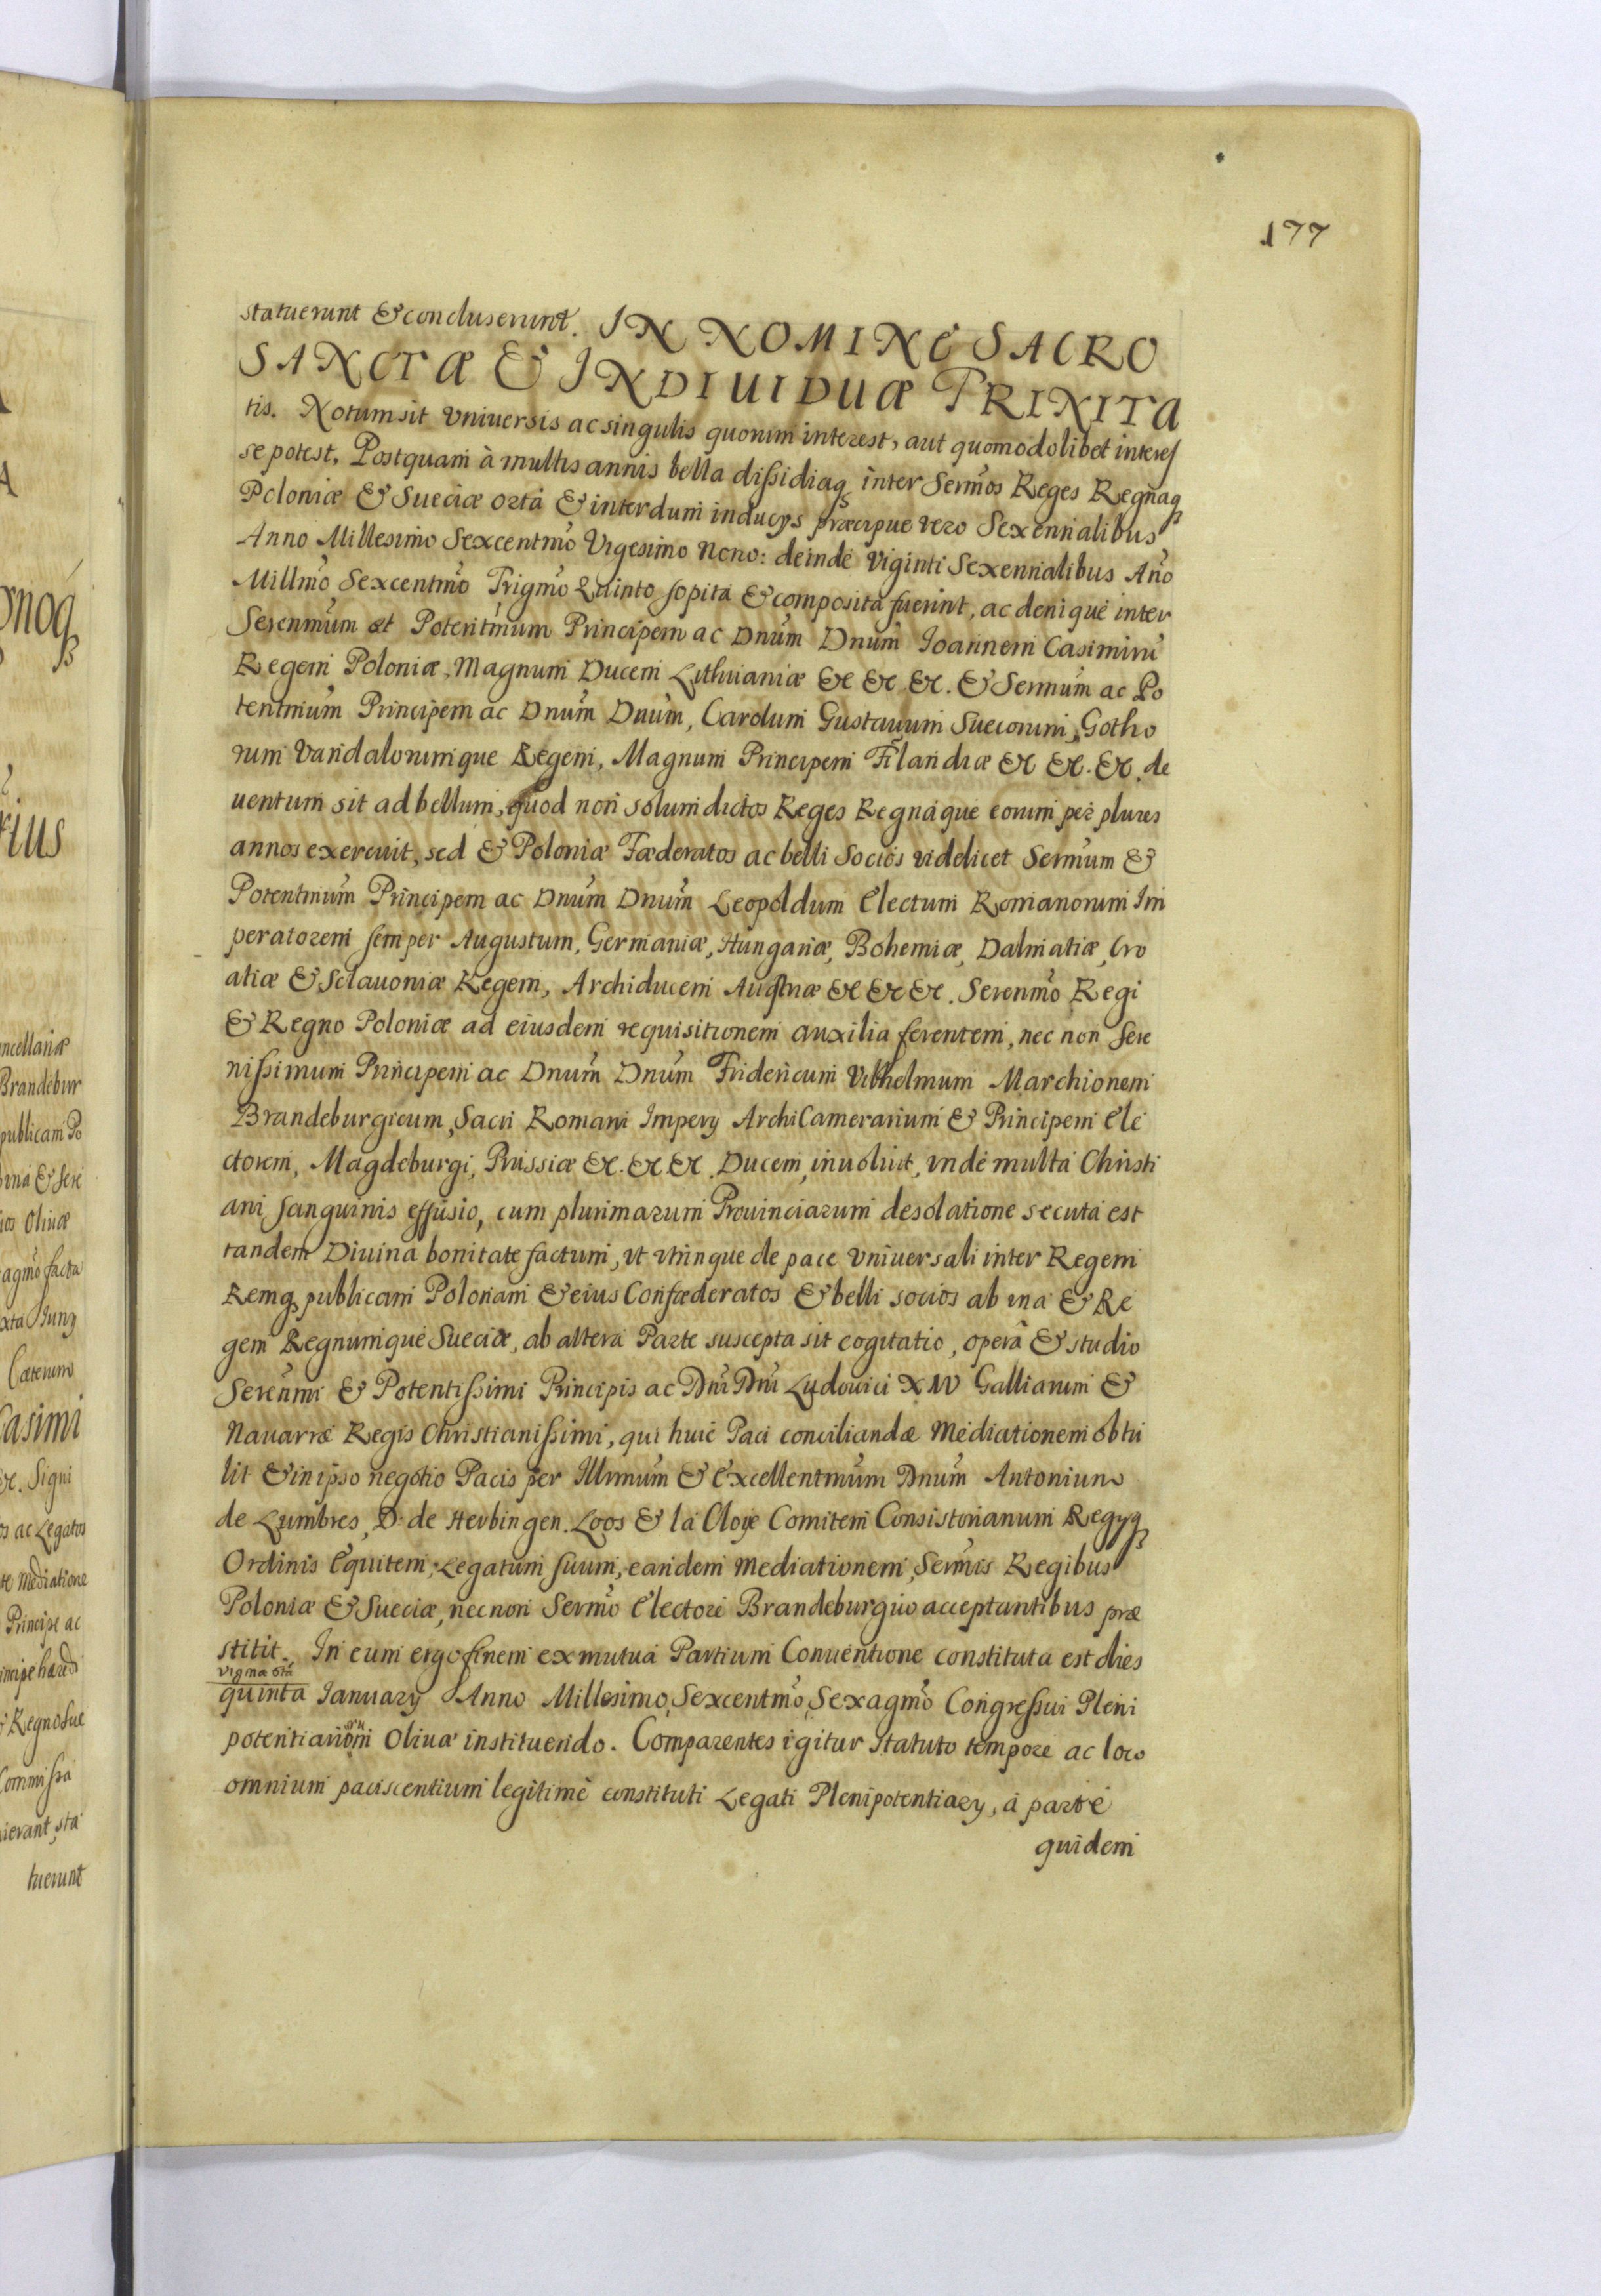 177
statuerunt & concluserunt. IN NOMINE SACRO
SANCTÆ & INDIUIDUÆ TRINITA
tis. Notum sit vniuersis ac singulis quorum interest, aut quomodolibet interes
se potest, Postquam à multis annis bella dissidiaq inter Sermos Reges Regnaq
Poloniæ & Sueciæ orta & interdum inducijs præcipue vero Sexennalibus
Anno Millesimo Sexcentmo Vigesimo Nono: deinde Viginti Sexennalibus Año
Millmo Sexcentmo Trigmo Quinto sopita & composita fuerint, ac denique inter
Serenmum et Potentmum Principem ac Dnum Dnum Ioannem Casimirū
Regem Poloniæ, Magnum Ducem Lithuaniæ &c &c &c. & Sermum ac Po
tentmum Principem ac Dnum Dnum, Carolum Gustauum Suecorum, Gotho
rum Vandalorumque Regem, Magnum Principem Fīlandiæ &c &c. &c. de
uentum sit ad bellum, quod non solum dictos Reges Regnaque eorum per plures
annos exercuit, sed & Poloniæ Fœderatos ac belli Socios videlicet Sermum &
Potentmum Principem ac Dnum Dnum Leopoldum Electum Romanorum Im
peratorem semper Augustum, Germaniæ, Hungariæ, Bohemiæ, Dalmatiæ, Cro
atiæ & Sclauoniæ Regem, Archiducem Austriæ &c &c &c. Serenmo Regi
& Regno Poloniæ ad eiusdem requisitionem auxilia ferentem, nec non Sere
nissimum Principem ac Dnum Dnum Fridericum Vilhelmum Marchionem
Brandeburgicum, Sacri Romani Imperij ArchiCamerarium & Principem Ele
ctorem, Magdeburgi, Prussiæ &c. &c &c. Ducem, inuoluit, vnde multa Christi
ani sanguinis effusio, cum plurimarum Prouinciarum desolatione secuta est
tandem Diuina bonitate factum, vt vtrinque de pace vniuersali inter Regem
Remq publicam Polonam & eius Confœderatos & belli socios ab vna & Re
gem Regnumque Sueciæ, ab altera Parte suscepta sit cogitatio, operâ & studio
Serenmi & Potentissimi Principis ac Dni Dni Ludouici XIV Galliarum &
Nauarræ Regis Christianissimi, qui huic Paci conciliandæ Mediationem obtu
lit & in ipso negotio Pacis per Illmum & Excellentmum Dnum Antonium
de Lumbres, D: de Herbingen. Loos & la Cloye Comitem Consistorianum Regyq
Ordinis Equitem, Legatum suum, eandem mediationem, Sermis Regibus
Poloniæ & Sueciæ, necnon Sermo Electore Brandeburgico acceptantibus præ
stitit. In eum ergo finem ex mutua Partium Conuentione constituta est dies
quinta January Anno Millesimo, Sexcentmo, Sexagmo Congressui Pleni
potentiariorum Oliuæ instituendo. Comparentes igitur statuto tempore ac loco
omnium paciscentium legitimè constituti Legati Plenipotentiary, à parte
quidem